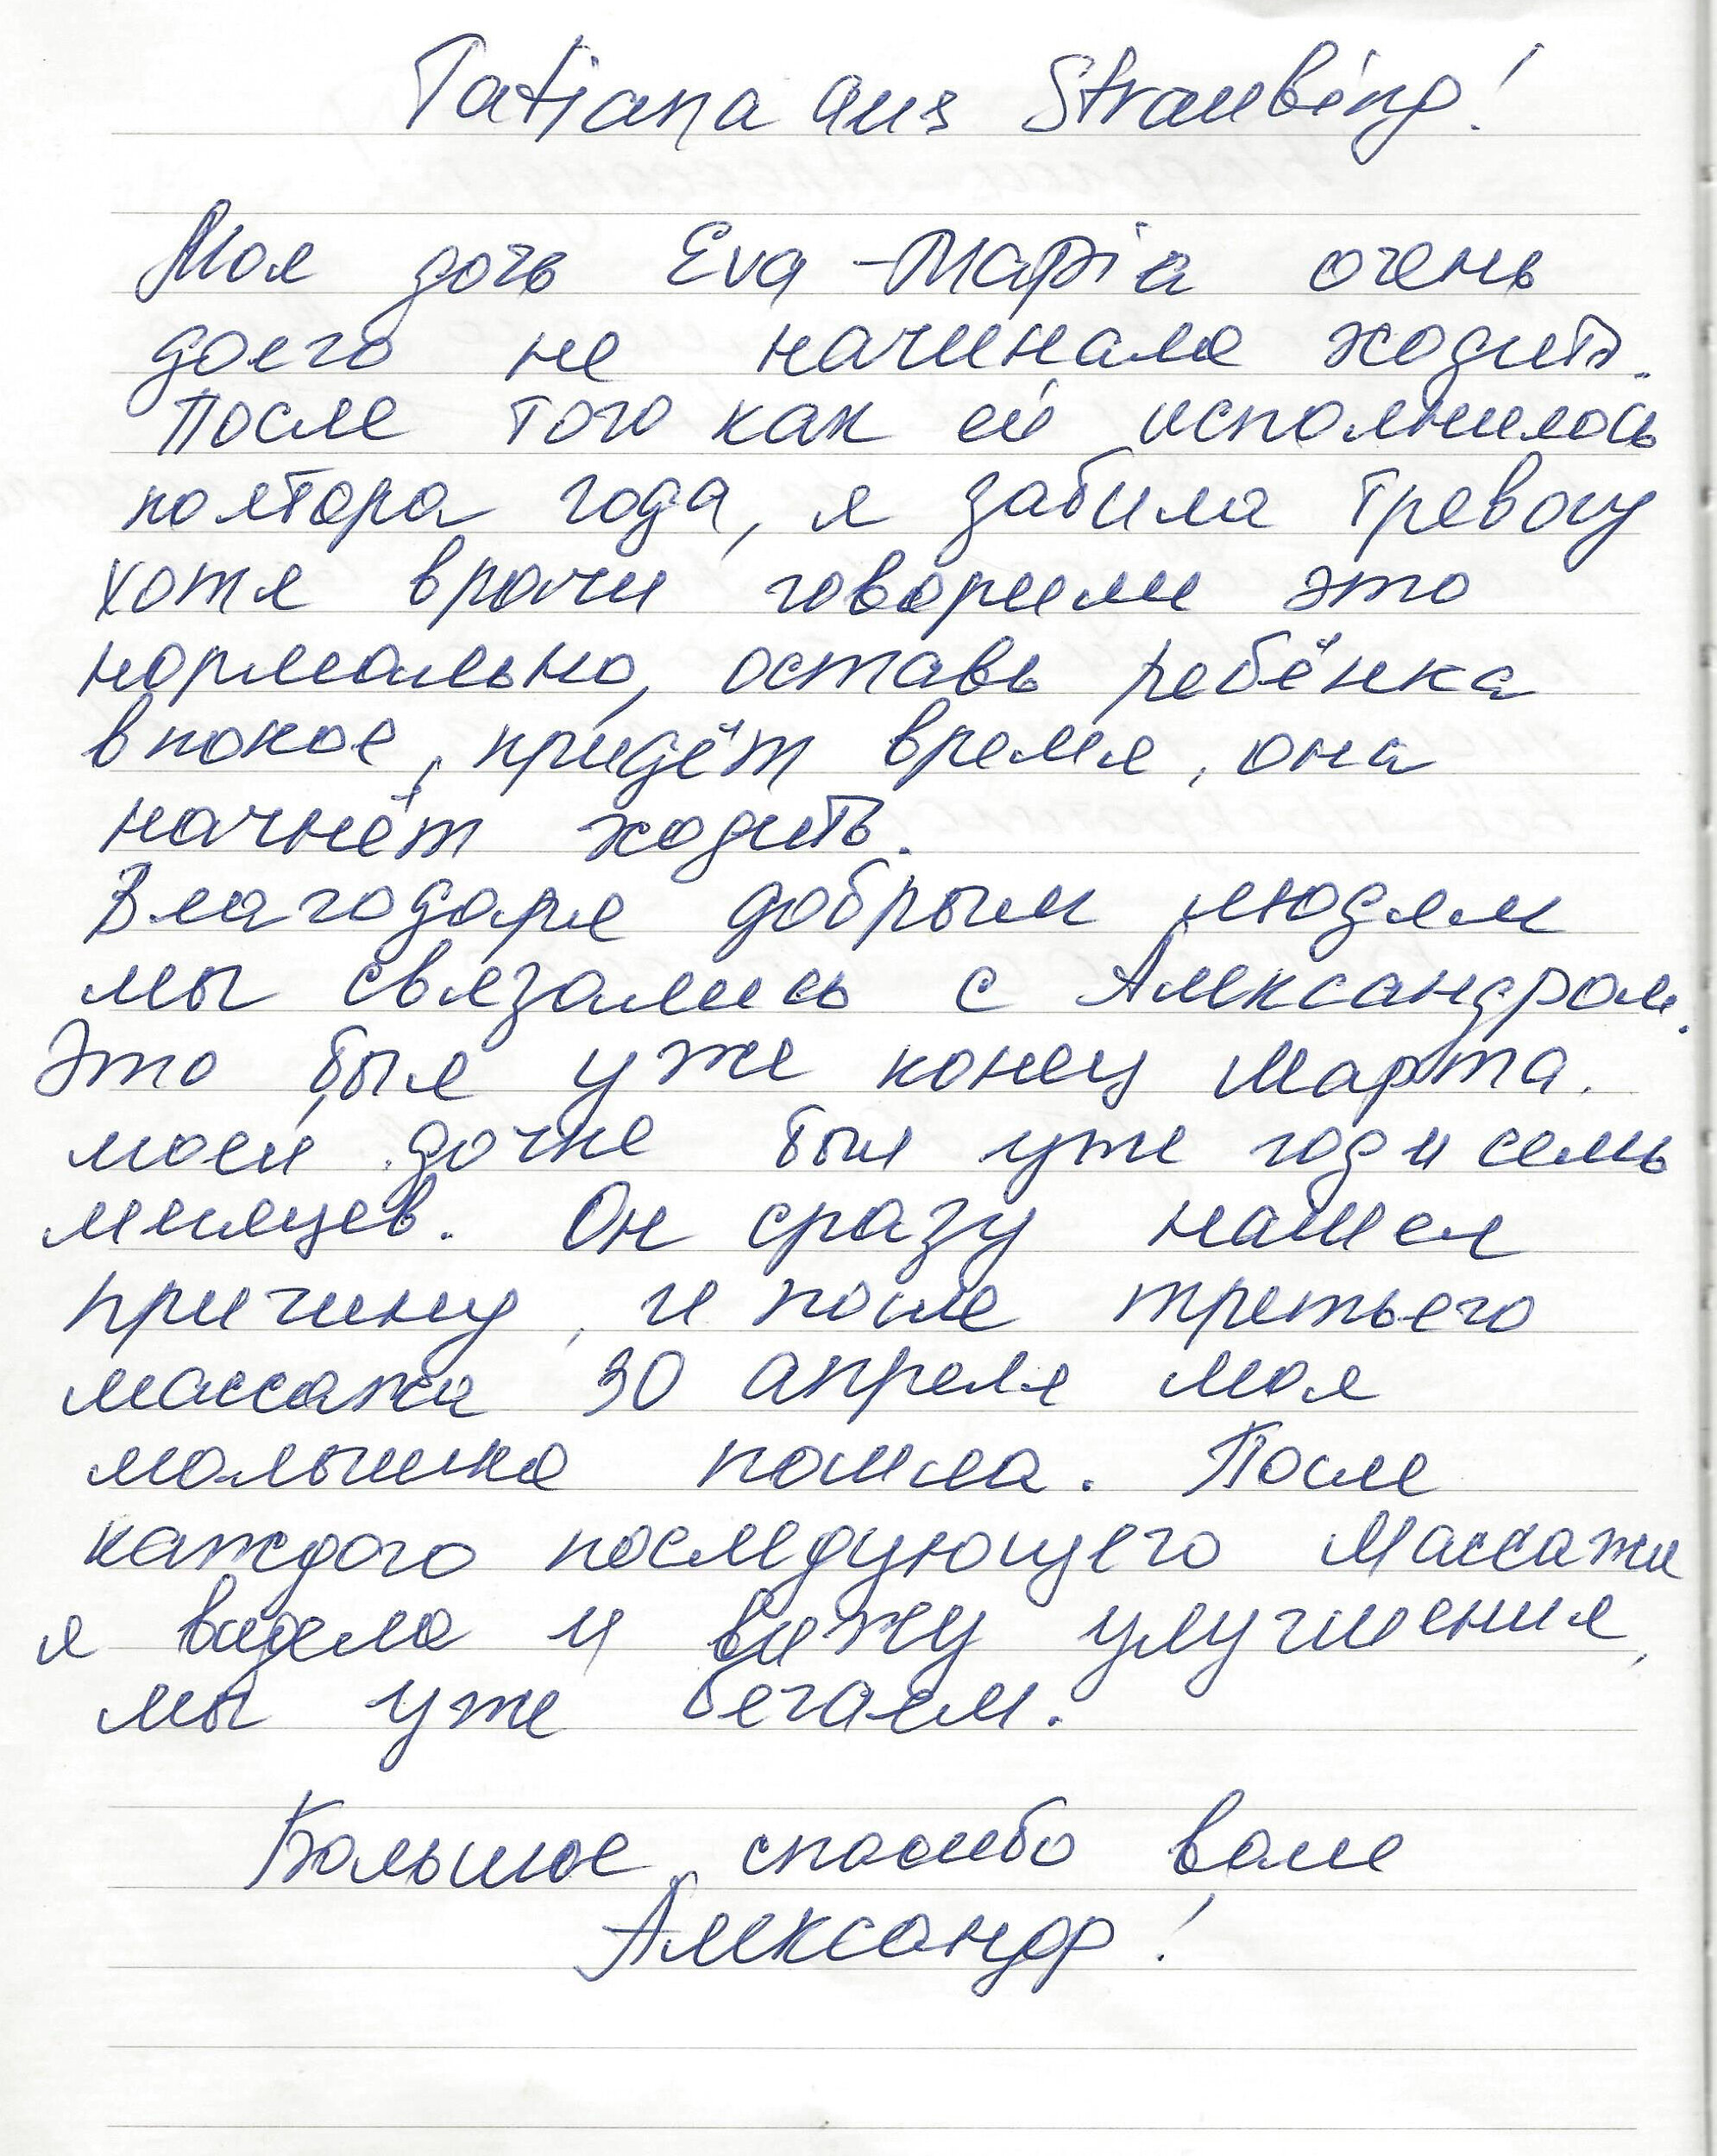 Tatiana aus Straubing!
Моя дочь Eva-Марiа очень
долго не начинала ходить.
После того как ей исполнилось
полтора года, я забила тревогу
хотя врачи говорили это
нормально, оставь ребёнка
в покое, придёт время, она
начнёт ходить.
Благодаря добрым людям
мы связались с Александром.
Это был уже конец Марта.
моей дочке был уже год и семь
месяцев. Он сразу нашел
причину, и после третьего
массажа 30 апреля моя
малышка пошла. После
каждого последующего массажа
я видела и вижу улучшения,
мы уже бегаем.
Большое спасибо вам
Александр!